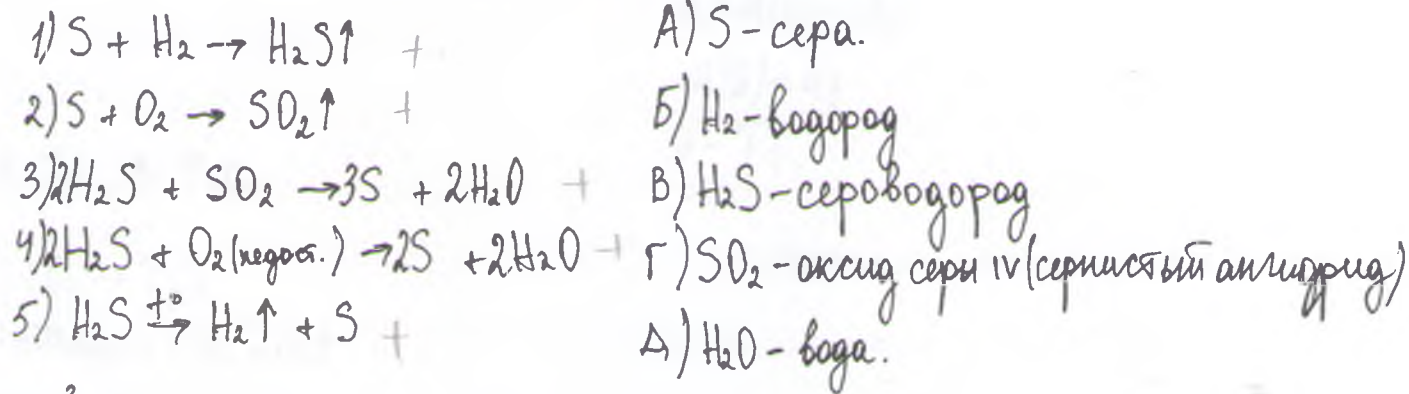 1) S + H₂ → H₂S↑ +
2) S + O₂ → SO₂↑ +
3) 2H₂S + SO₂ → 3S + 2H₂O +
4) 2H₂S + O₂ (недост.) → 2S + 2H₂O +
5) H₂S t°→ H₂↑ + S +
А) S - сера.
Б) H₂ - водород
В) H₂S - сероводород
Г) SO₂ - оксид серы IV (сернистый ангидрид)
Д) H₂O - вода.